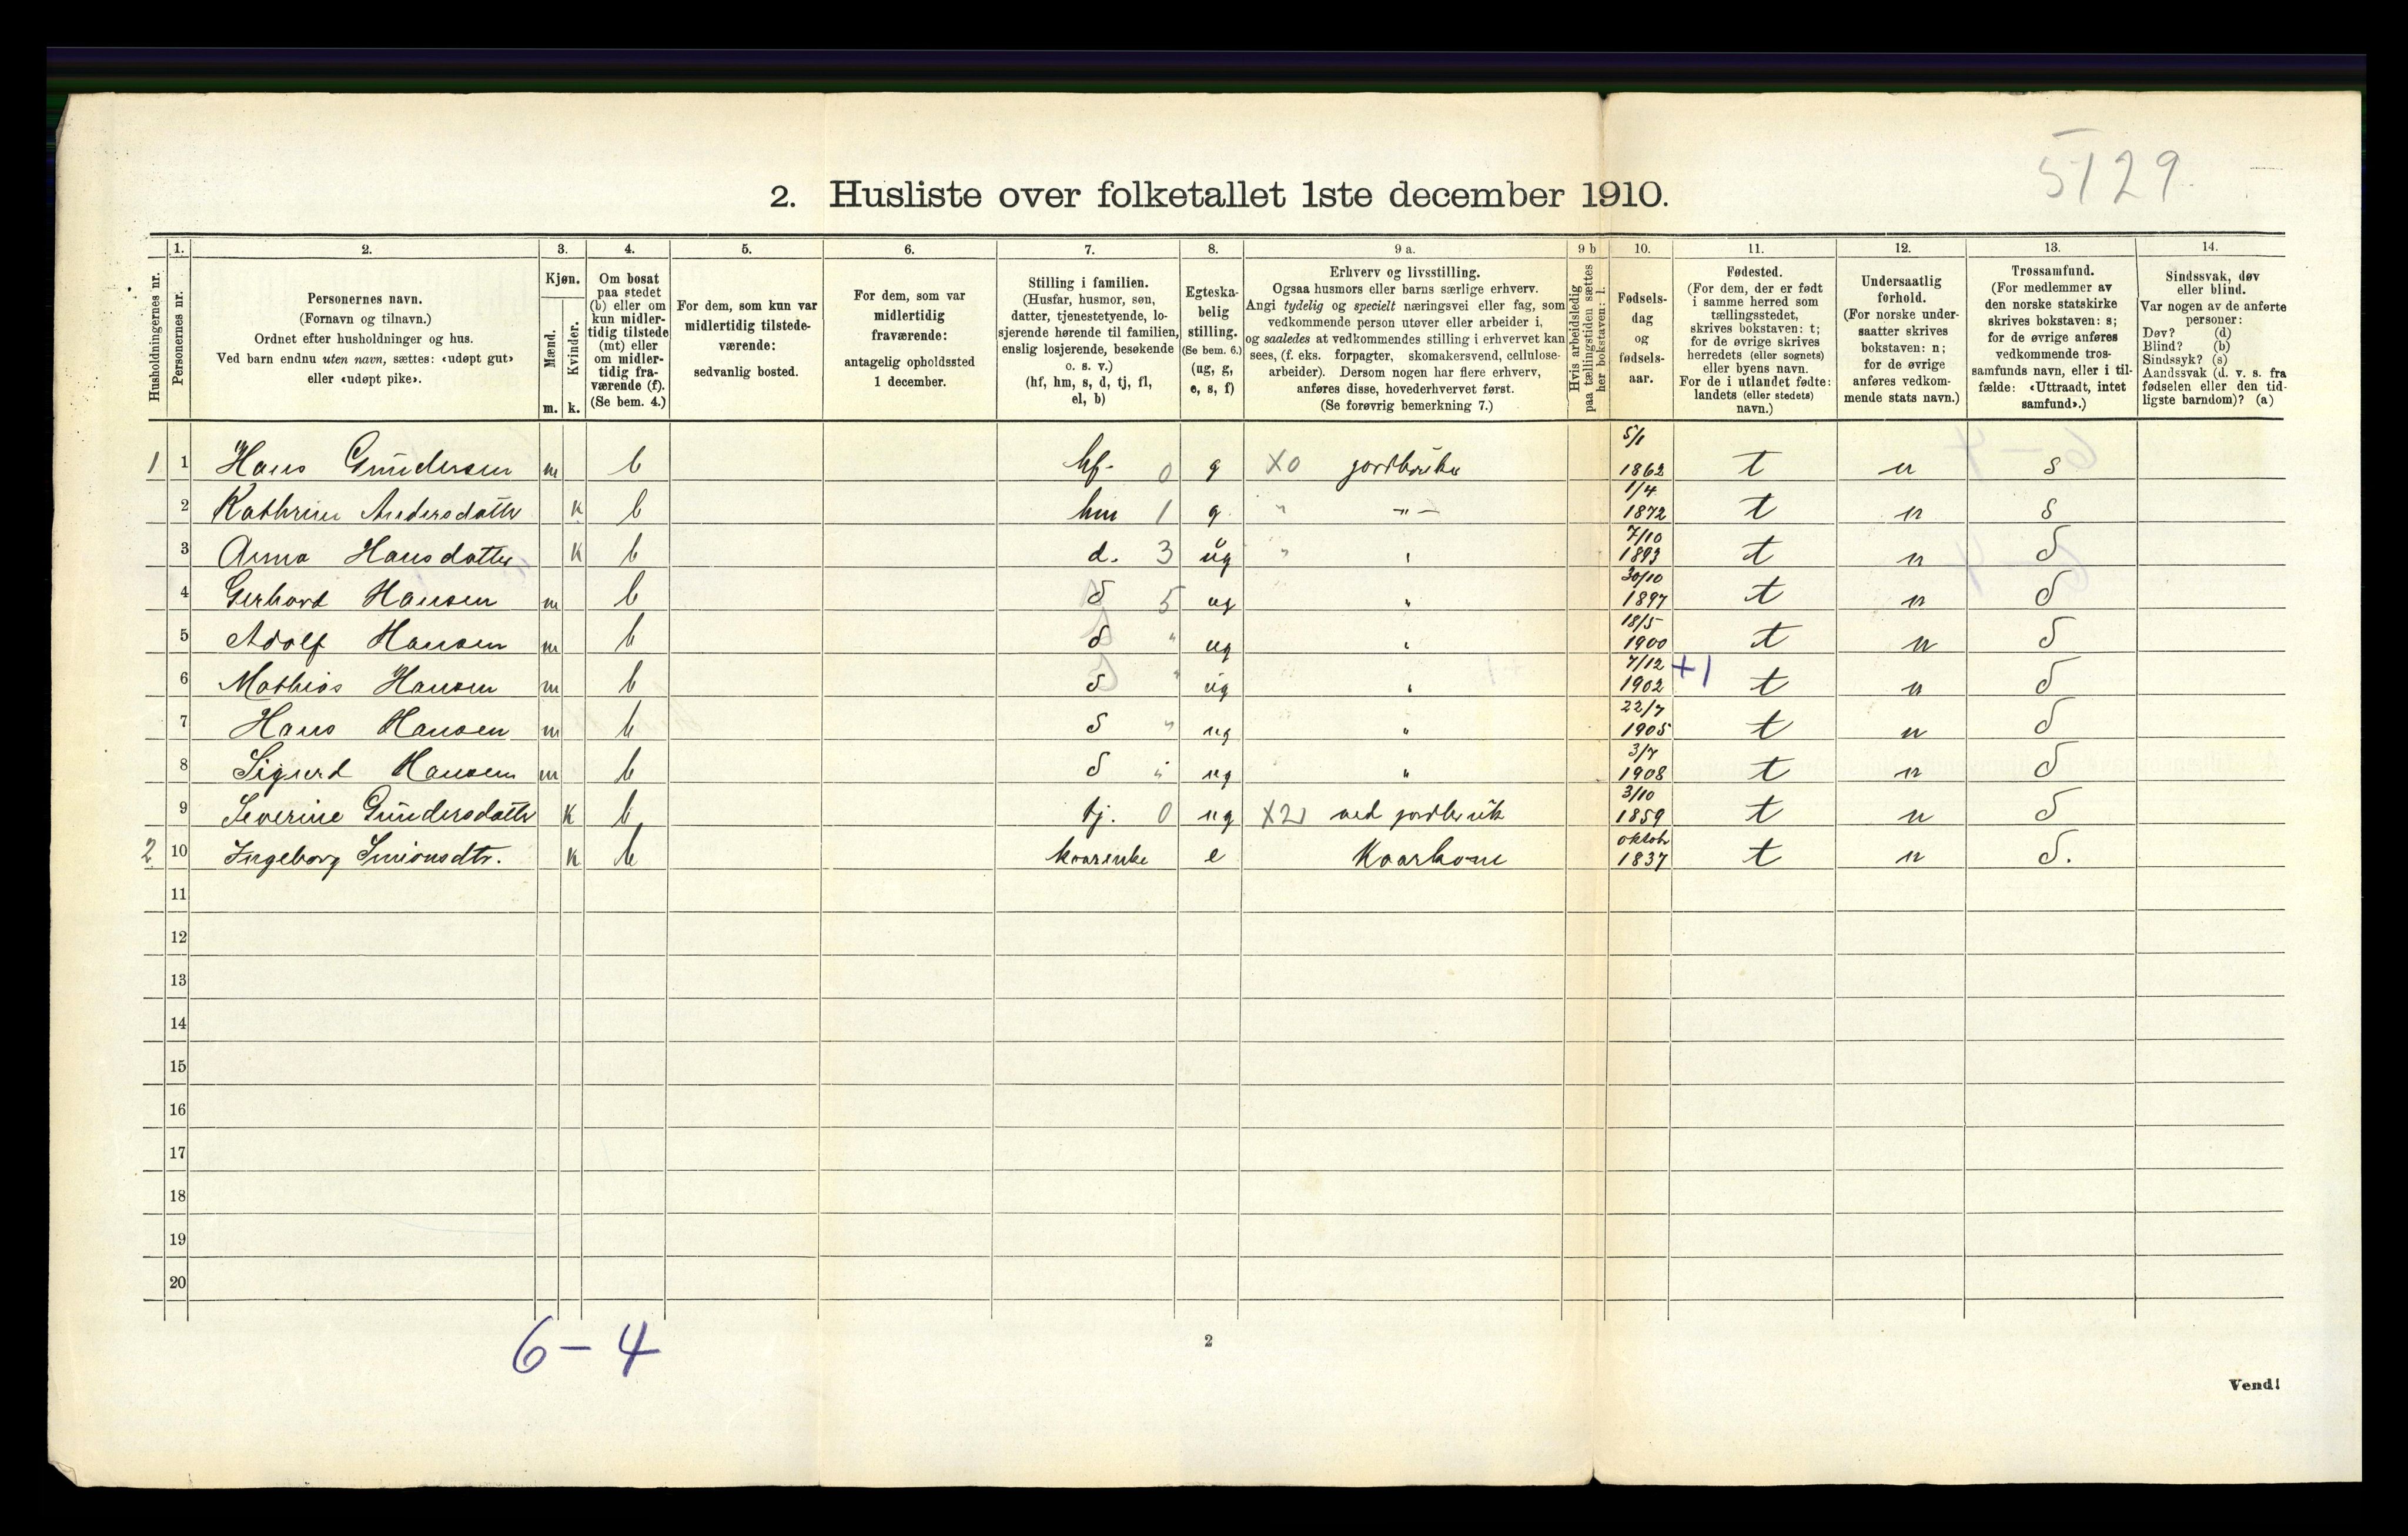 5129
2. Husliste over folketallet 1ste december 1910.
Husholdningernes nr.
1.
Personernes nr.
2.
Personernes navn.
(Fornavn og tilnavn.)
Ordnet efter husholdninger og hus.
Ved barn endnu uten navn, sættes: «udøpt gut»
eller «udøpt pike».
3.
Kjøn.
Mænd.
Kvinder.
m. k.
4.
Om bosat
paa stedet
(b) eller om
kun midler-
tidig tilstede
(mt) eller
om midler-
tidig fra-
værende (f).
(Se bem. 4.)
5.
For dem, som kun var
midlertidig tilstede-
værende:
sedvanlig bosted.
6.
For dem, som var
midlertidig
fraværende:
antagelig opholdssted
1 december.
7.
Stilling i familien.
(Husfar, husmor, søn,
datter, tjenestetyende, lo-
sjerende hørende til familien,
enslig losjerende, besøkende
o. s. v.)
(hf, hm, s, d, tj, fl,
el, b)
8.
Egteska-
belig
stilling.
(Se bem. 6.)
(ug, g,
e, s, f)
9 a.
Erhverv og livsstilling.
Ogsaa husmors eller barns særlige erhverv.
Angi tydelig og specielt næringsvei eller fag, som
vedkommende person utøver eller arbeider i,
og saaledes at vedkommendes stilling i erhvervet kan
sees, (f. eks. forpagter, skomakersvend, cellulose-
arbeider). Dersom nogen har flere erhverv,
anføres disse, hovederhvervet først.
(Se forøvrig bemerkning 7.)
9 b
Hvis arbeidsledig
paa tællingstiden sættes
her bokstaven: l.
10.
Fødsels-
dag
og
fødsels-
aar.
11.
Fødested.
(For dem, der er født
i samme herred som
tællingsstedet,
skrives bokstaven: t;
for de øvrige skrives
herredets (eller sognets)
eller byens navn.
For de i utlandet fødte:
landets (eller stedets)
navn.)
12.
Undersaatlig
forhold.
(For norske under-
saatter skrives
bokstaven: n;
for de øvrige
anføres vedkom-
mende stats navn.)
13.
Trossamfund.
(For medlemmer av
den norske statskirke
skrives bokstaven: s;
for de øvrige anføres
vedkommende tros-
samfunds navn, eller i til-
fælde: «Uttraadt, intet
samfund».)
14.
Sindssvak, døv
eller blind.
Var nogen av de anførte
personer:
Døv? (d)
Blind? (b)
Sindssyk? (s)
Aandssvak (d. v. s. fra
fødselen eller den tid-
ligste barndom)? (a)
1 1 Hans Gundersen m b hf. 0 g X0 jordbruker 5/1 1862 t n s
2 Kathrine Andersdatter k b hm 1 g " -"- 1/4 1872 t n s
3 Anna Hansdatter k b d. 3 ug " " 7/10 1893 t n s
4 Gerhard Hansen m b s 5 ug " 30/10 1897 t n s
5 Adolf Hansen m b s " ug " 18/5 1900 t n s
6 Mathias Hansen m b s " ug " 7/12 1902 +1 t n s
7 Hans Hansen m b s " ug " 22/7 1905 t n s
8 Sigurd Hansen m b s " ug " 3/7 1908 t n s
9 Severine Gundersdatter k b tj. 0 ug X21 ved jordbruk 3/10 1859 t n s
2 10 Ingeborg Simonsdtr. k b e Kaarkone oktobr 1837 t n s.
11
12
13
14
15
16
17
18
19
20
6-4
2
Vend!